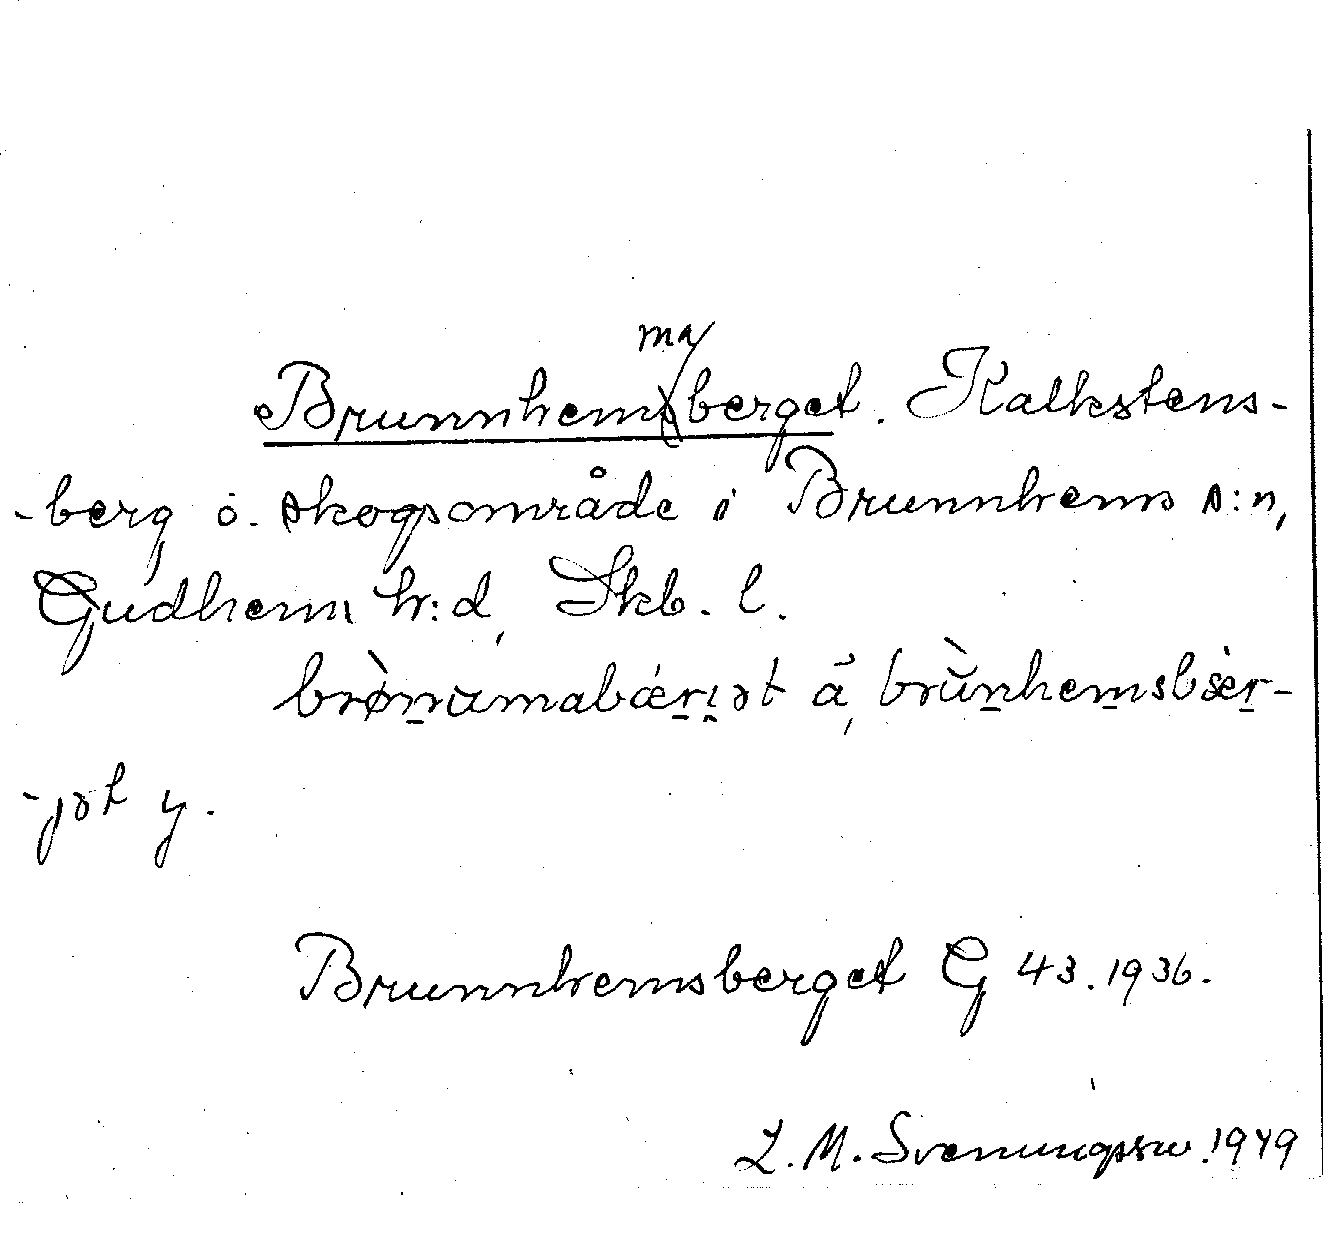 Brunnhemmaberget. Kalkstens-
-berg o. skogsområde i Brunnhems s:n,
Gudhem h:d, Skb. l.
brø̀numabærjət ä, brùnhemsbær-
-jət y.
Brunnhemsberget G 43. 1936.
L. M. Svenungsson. 1949